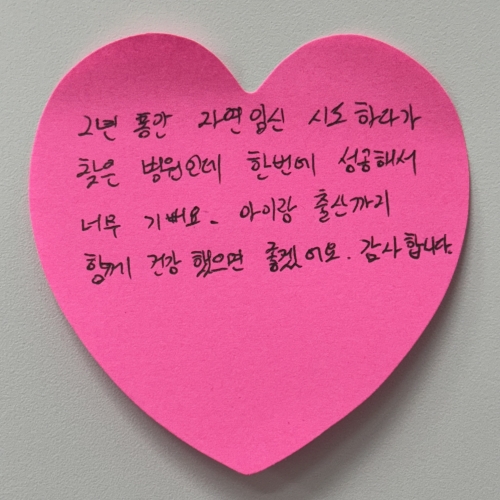 2년 동안 자연임신 시도하다가
찾은 병원인데 한번에 성공해서
너무 기뻐요. 아이랑 출산까지
함께 건강했으면 좋겠어요. 감사합니다.